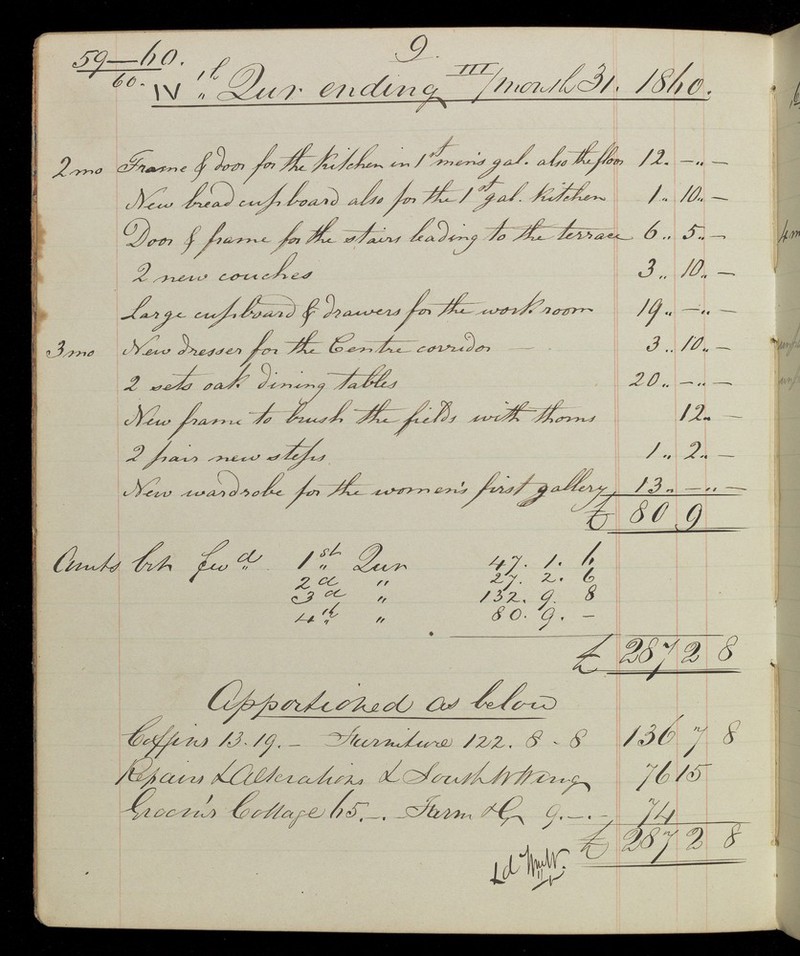 59—60.
60.
9.
IVth Qur ending III/month 31. 1860.
2 mo Frame & door for the kitchen in 1st men's gal. also the floor 12. — " —
New bread cupboard also for the 1st gal. kitchen 1 " 10 " —
Door & frame for the stairs leading to the terrace 6 " 5 " —
2 new couches 3 " 10 " —
Large cupboard & drawers for the work room 19 " — " —
3 mo New dresser for the Centre corridor — 3 " 10 " —
2 sets oak dining tables 20 " — " —
New frame to brush the fields with thorns 12 " —
2 pair new steps 1 " 2 " —
New wardrobe for the women's first gallery 13 " — " —
£ 80 9
Amts brt fwd 1st Qur 47. 1. 6
2d " 27. 2. 6
3d " 132. 9. 8
4th " 80. 9. —
£ 287 2 8
Apportioned as below
Coffins 13.19. — Furniture 122. 8 - 8 136 7 8
Repairs & Alterations & South W Wing 76 15
Groom's Cottage 65. —. — Farm & G 9. —. — 74
£ 287 2 8